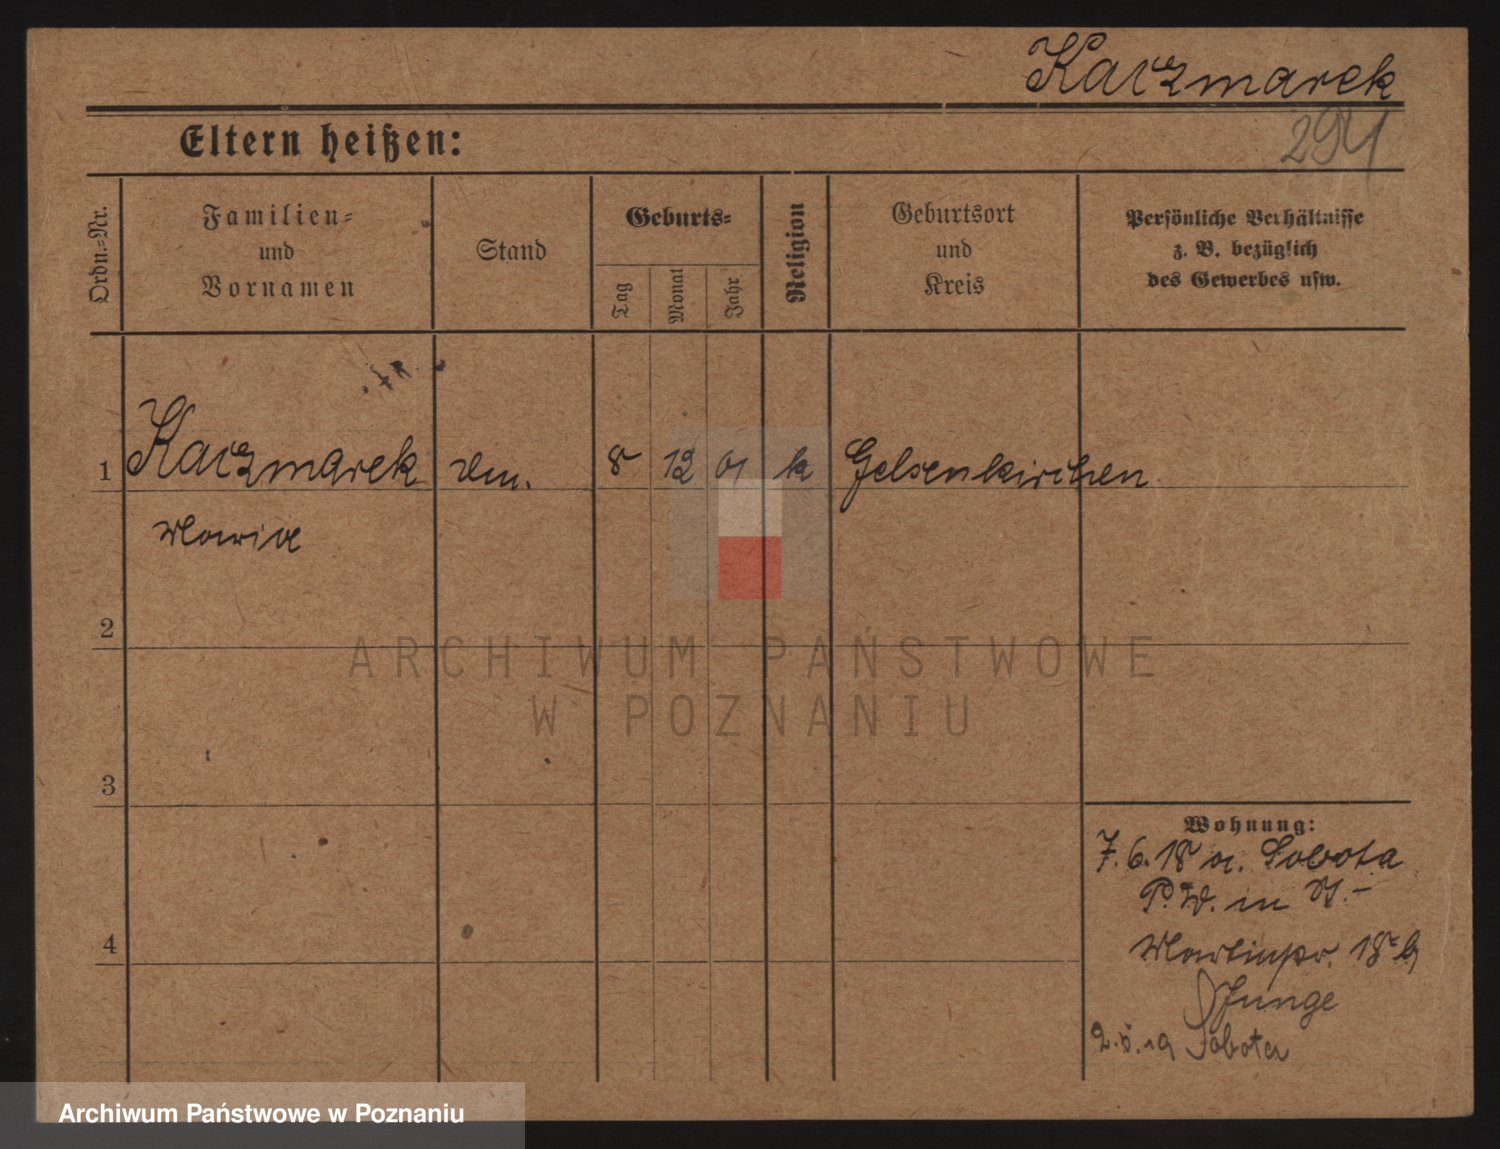 Kaczmarek
294
Eltern heißen:
Ordn.=Nr.
Familien=
und
Vornamen
Stand
Geburts=
Tag
Monat
Jahr
Religion
Geburtsort
und
Kreis
Persönliche Verhältnisse
z. B. bezüglich
des Gewerbes usw.
1 Kaczmarek 8 12 01 k Gelsenkirchen
Maria
2
ARCHIWUM PAŃSTWOWE
W POZNANIU
3
Wohnung:
7.6.18 a. Sobota
P. W. in
4
Martinstr. 18
Junge
Sobota
Archiwum Państwowe w Poznaniu